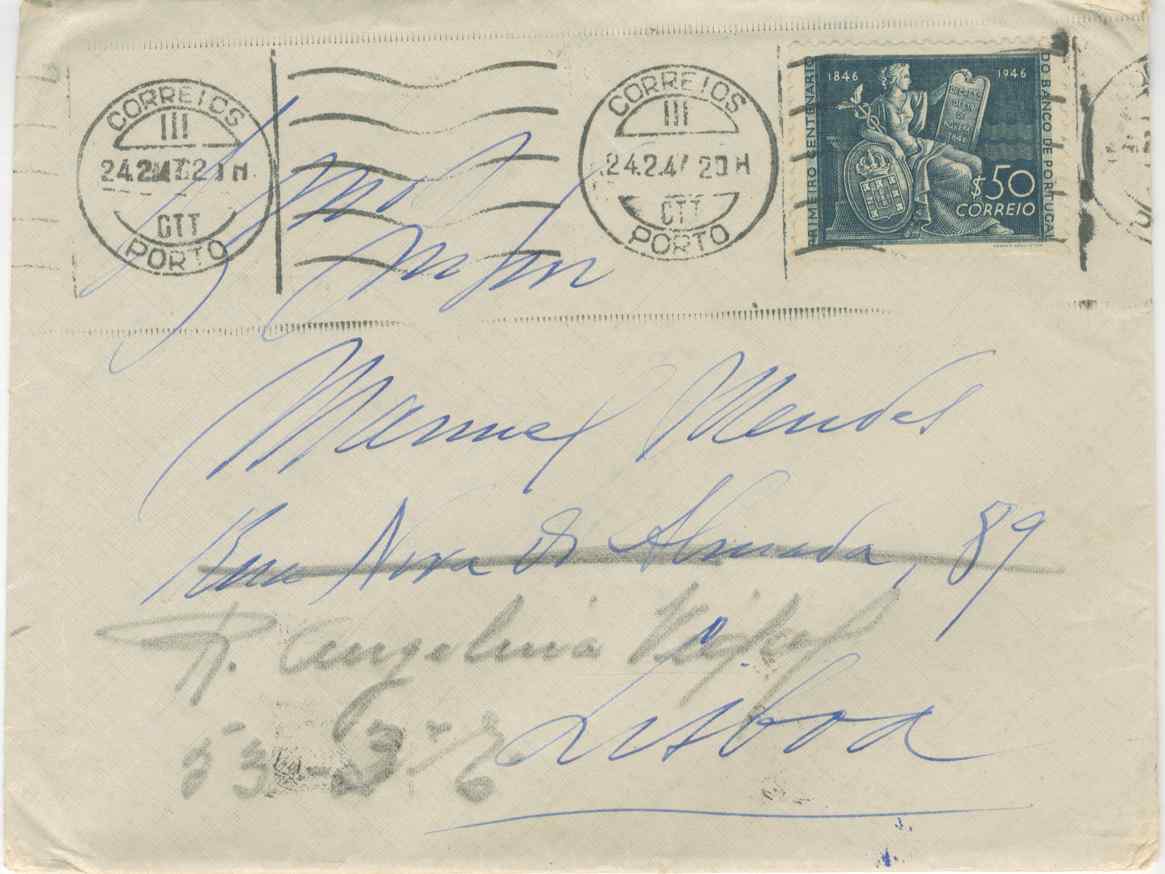 CORREIOS
III
24.2.47 20 H
CTT
PORTO
CORREIOS
III
24.2.47 20 H
CTT
PORTO
PRIMEIRO CENTENÁRIO
1846
1946
DO BANCO DE PORTUGAL
$50
CORREIO
Exmo Sr
Manuel Mendes
Rua Nova do Almada, 89
R. Angelina Vidal
53-3º E
Lisboa